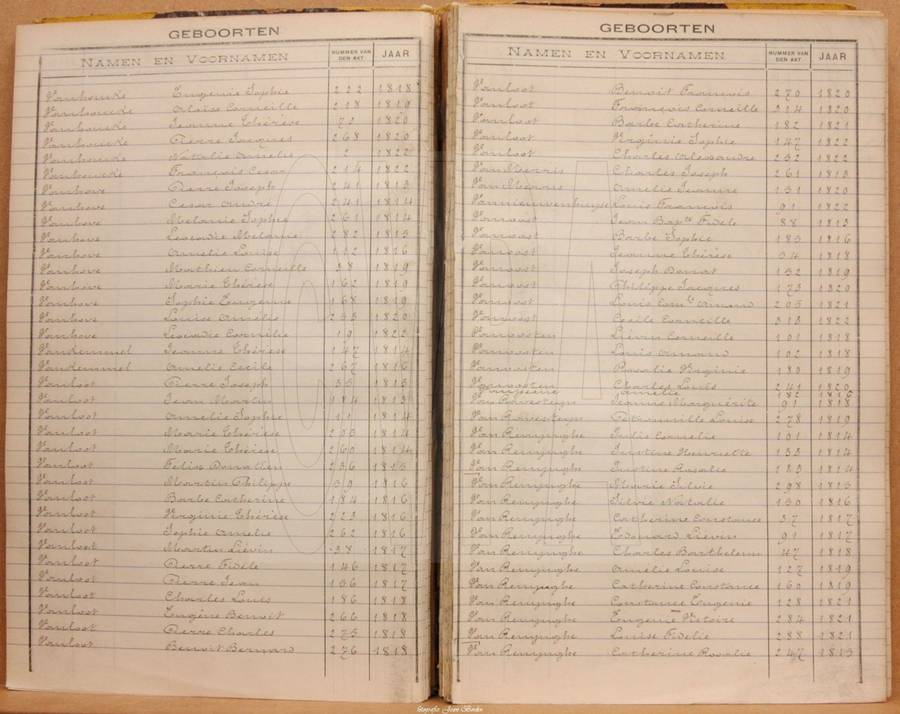 GEBOORTEN
NAMEN EN VOORNAMEN NUMMER VAN DEN AKT JAAR
Vanhoucke Eugenie Sophie 222 1818
Vanhoucke Aloise Corneille 218 1819
Vanhoucke Jeanne Thérèse 1820
Vanhoucke Pierre Jacques 268 1820
Vanhoucke Natalie Amelie 2 1822
Vanhoucke François Cesar 214 1822
Vanhove Pierre Joseph 241 1813
Vanhove Cesar André 241 1814
Vanhove Melanie Sophie 261 1814
Vanhove Leocadie Melanie 282 1815
Vanhove Amelie Louise 1816
Vanhove Mathieu Corneille 38 1819
Vanhove Marie Thérèse 162 1819
Vanhove Sophie Eugenne 168 1819
Vanhove Louise Amelie 253 1820
Vanhove Leocadie Cornelie 19 1822
Van Hemmel Jeanne Thérèse 147 1814
Van Hemmel Amelie Cecile 267 1816
Vanloot Pierre Joseph 1813
Vanloot Jean Martin 184 1813
Vanloot Amelie Sophie 11 1814
Vanloot Marie Thérèse 1814
Vanloot Marie Thérèse 260 1814
Vanloot Felix Donatien 236 1815
Vanloot Martin Philippe 59 1816
Vanloot Barbe Catherine 184 1816
Vanloot Virginie Thérèse 223 1816
Vanloot Sophie Amelie 262 1816
Vanloot Martin Liévin 28 1817
Vanloot Pierre Fidèle 146 1817
Vanloot Pierre Jean 156 1817
Vanloot Charles Louis 186 1818
Vanloot Eugène Benoit 266 1818
Vanloot Pierre Charles 275 1818
Vanloot Benoit Bernard 276 1818
GEBOORTEN
NAMEN EN VOORNAMEN NUMMER VAN DEN AKT JAAR
Vanloot Benoit François 270 1820
Vanloot François Corneille 314 1820
Vanloot Barbe Catherine 182 1821
Vanloot Virginie Sophie 147 1822
Vanloot Charles Alexandre 232 1822
Charles Joseph 261 1813
Amelie Jeanne 131 1820
Vannieuwenhuyse Louis François 91 1822
Vanoost Jean Bap.te Fidèle 88 1813
Vanoost Barbe Sophie 183 1816
Vanoost Jeanne Thérèse 34 1818
Vanoost Joseph Donat 132 1819
Vanoost Philippe Jacques 173 1820
Vanoost Louis Amand 205 1821
Vanoost Cecile Corneille 313 1822
Vanoosten Liévin Corneille 101 1818
Vanoosten Louis Armand 102 1818
Vanoosten Rosalie Virginie 180 1819
Vanoosten Charles Louis 241 1820
Amelie 182 1816
Van Ravesteyn Jeanne Marguérite 91 1818
Van Ravesteyn Petronille Louise 278 1819
Van Renynghe Julie Cornelie 101 1814
Van Renynghe Justine Henriette 133 1814
Van Renynghe Justine Rosalie 183 1814
Van Renynghe Marie Silvie 298 1815
Van Renynghe Silvie Natalie 130 1816
Van Renynghe Catherine Constance 37 1817
Van Renynghe Edouard Lievin 91 1817
Van Renynghe Charles Barthelemi 47 1818
Van Renynghe Amelie Louise 127 1819
Van Renynghe Catherine Constance 160 1819
Van Renynghe Constance Eugenie 128 1821
Van Renynghe Eugenie Victoire 284 1821
Van Renynghe Louise Fidelie 288 1821
Van Renynghe Catherine Rosalie 247 1813